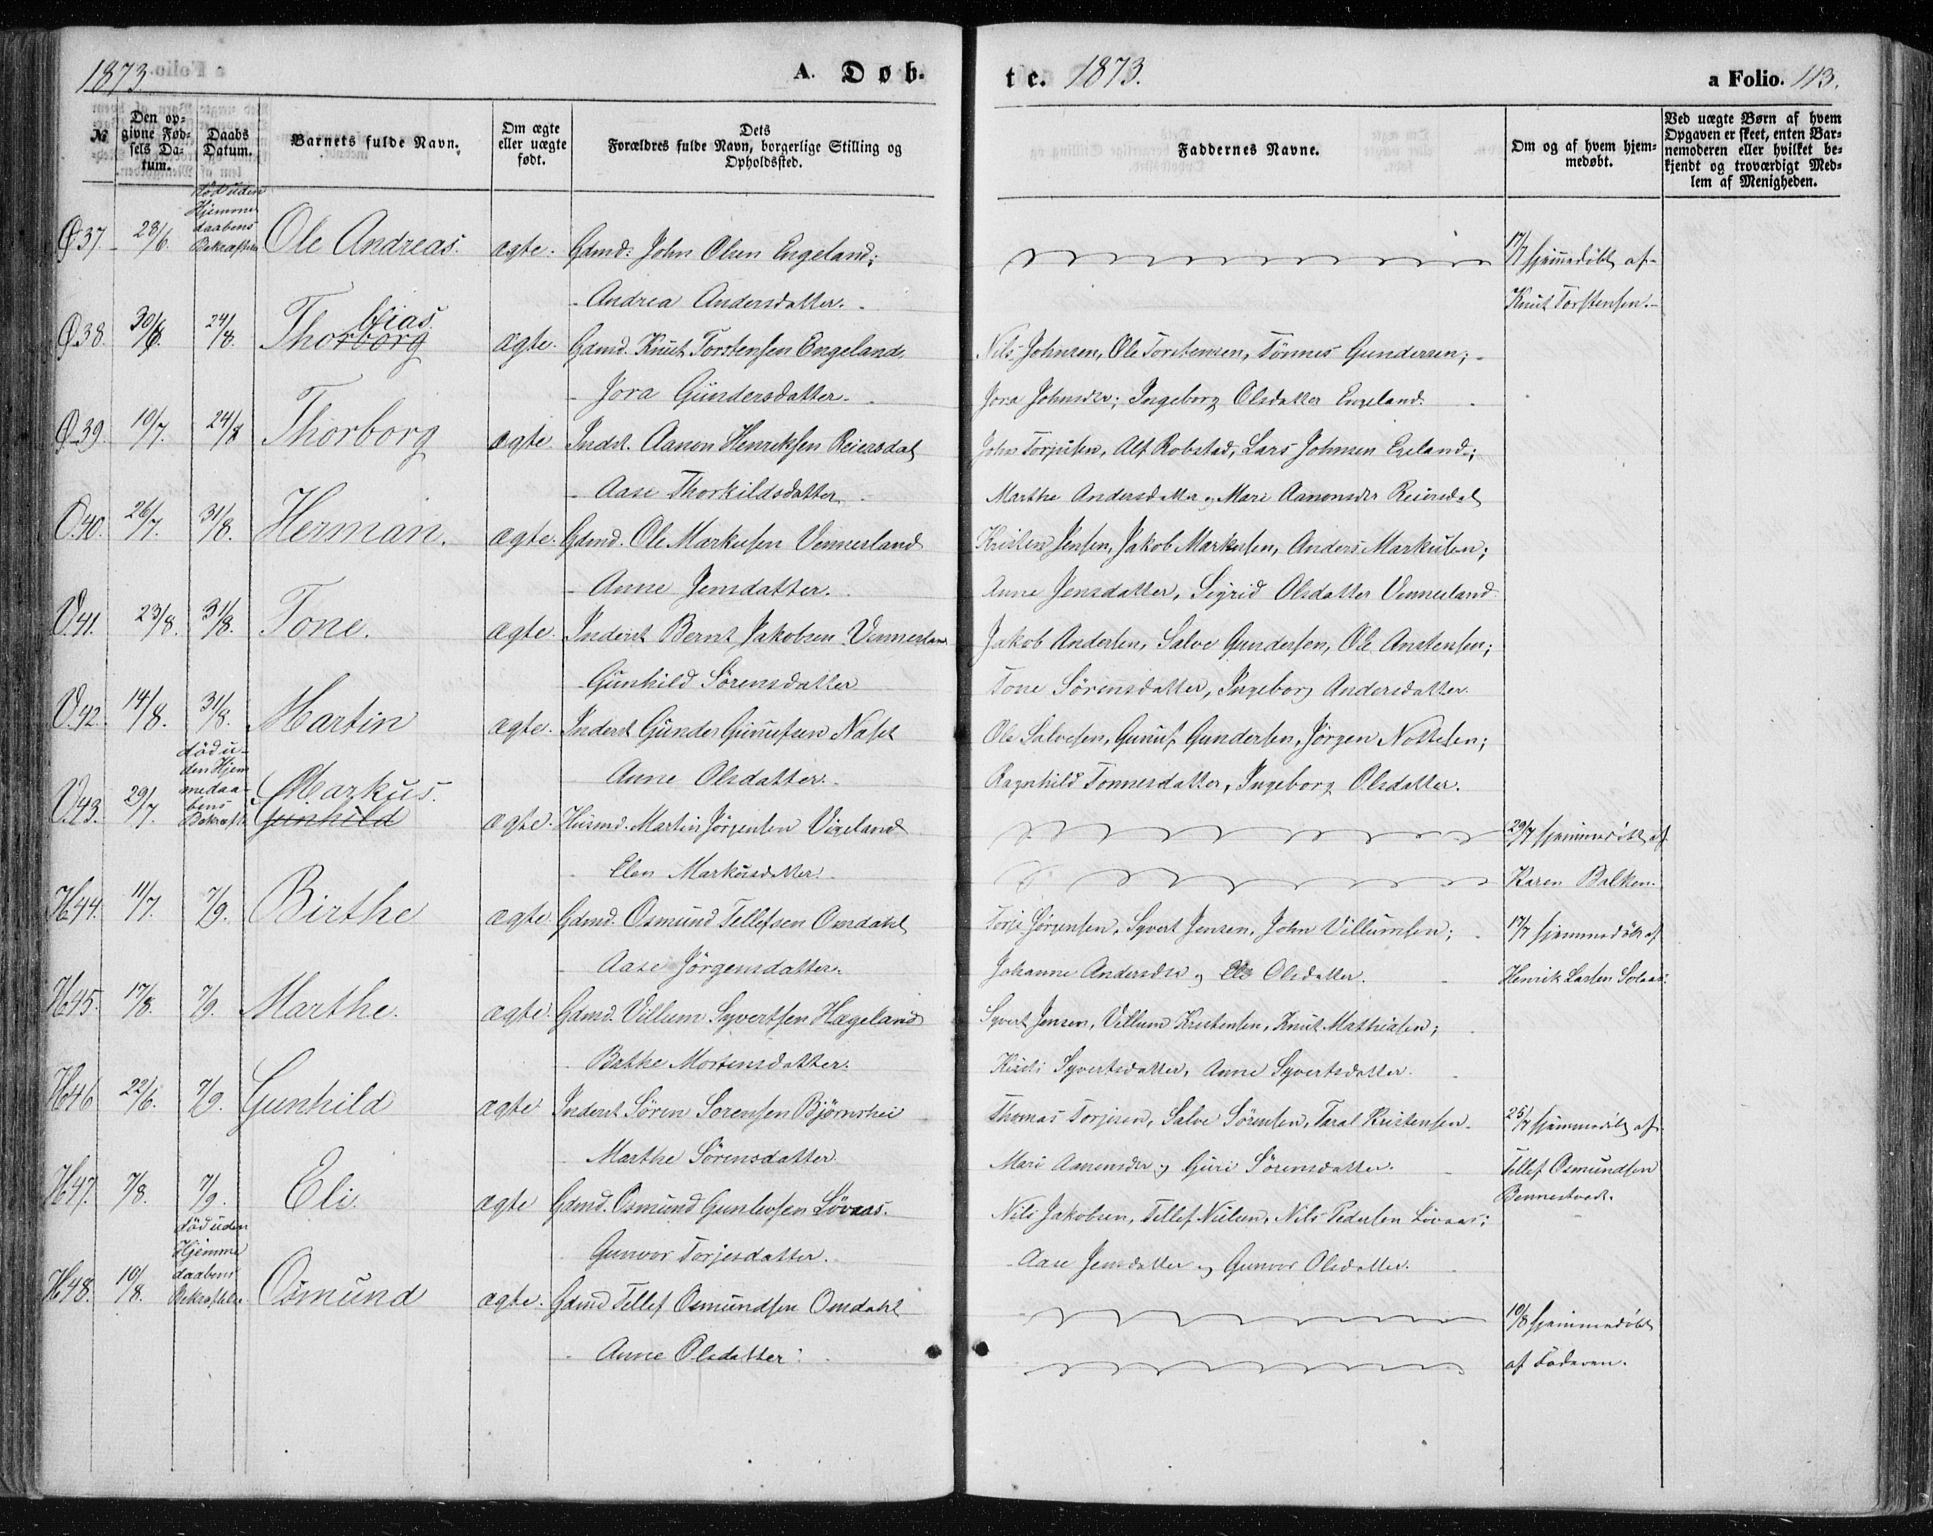 1873. A. Døb- te. 1873. a Folio. 113.
№ Den opgivne Fødsels Datum. Daabs Datum. Barnets fulde Navn. Om ægte eller uægte født. Dets Forældres fulde Navn, borgerlige Stilling og Opholdssted. Faddernes Navne. Om og af hvem hjemmedøbt. Ved uægte Børn af hvem Opgaven er skeet, enten Barnemoderen eller hvilket bekjendt og troværdigt Medlem af Menigheden.
Ø37. 28/6. död uden Hjemmedaabens Bekræftelse Ole Andreas. ægte. Gdmd. John Olsen Engeland; 17/7 hjemmedöbt af
Andrea Andersdatter. Knut Torstensen.
Ø38. 30/6. 24/8. Thorborg bias. ægte. Gdmd. Knut Torstensen Engeland, Nils Johnsen, Ole Torstensen, Tönnes Gundersen;
Jora Gundersdatter. Jora Johnsdtr; Ingeborg Olsdatter Engeland.
Ø39. 10/7. 24/8 Thorborg ægte. Inderst. Aanon Henriksen Reiersdal John Torjusen, Alf Robstad, Lars Johnsen Egeland;
Aase Thorkildsdatter Marthe Andersdatter og Mari Aanonsdtr Reiersdal
Ø.40. 26/7. 31/8. Herman. ægte. Gdmd. Ole Markusen Vennerland Kristen Jensen, Jakob Markusen, Anders Markusen;
Anne Jensdatter. Anne Jensdatter, Sigrid Olsdatter Vennerland
V.41. 23/8. 31/8. Tone. ægte. Inderst Bernt Jakobsen Vennerland Jakob Andersen, Salve Gundersen, Ole Anstensen;
Gunhild Sörensdatter Tone Sörensdatter, Ingeborg Andersdatter.
V.42. 14/8. 31/8. Martin ægte. Inderst Gunder Gunufsen Naset Ole Salvesen, Gunuf Gundersen, Jörgen Nottesen;
Anne Olsdatter. Ragnhild Tonnesdatter, Ingeborg Olsdatter.
V.43. 29/7. död uden Hjemmedaabens Bekræft. Markus. Gunhild ægte. Husmd. Martin Jörgensen Vigeland 29/7 hjemmedöbt af
Elen Markusdatter. Karen Balken.
H44. 11/7. 7/9. Birthe ægte. Gdmd. Osmund Tellefsen Omdahl Torje Jörgensen, Syvert Jensen, John Villumsen; 17/7 hjemmedöbt af
Aase Jörgensdatter. Johanne Andersdtr og Olsdatter. Henrik Larsen Solaas.
H45. 17/8. 7/9. Marthe. ægte. Gdmd. Villum Syvertsen Hægeland Syvert Jensen, Villum Kristensen, Knut Mathiasen;
Bathe Mortensdatter. Kirsti Syvertsdatter, Anne Syvertsdatter.
H46 22/6. 7/9. Gunhild ægte Inderst Sören Sorensen Björnshei Thomas Torjesen, Salve Sörensen, Taral Kristensen. 25/7 hjemmedöbt af
Marthe Sörensdatter Mari Aanonsdtr og Guri Sörensdatter. Tellef Osmundsen
H47. 7/8. 7/9. Eli. ægte Gdmd. Osmund Gunlevsen Lövaas. Nils Jakobsen, Tellef Nielsen, Nils Pedersen Lövaas; Bennestvedt.
Gunvor Torjesdatter. Aase Jensdatter og Gunvor Olsdatter.
H48. 10/8. död uden Hjemmedaabens Bekræftelse Osmund ægte. Gdmd Tellef Osmundsen Omdahl 10/8 hjemmedöbt
Anne Olsdatter. af Faderen.